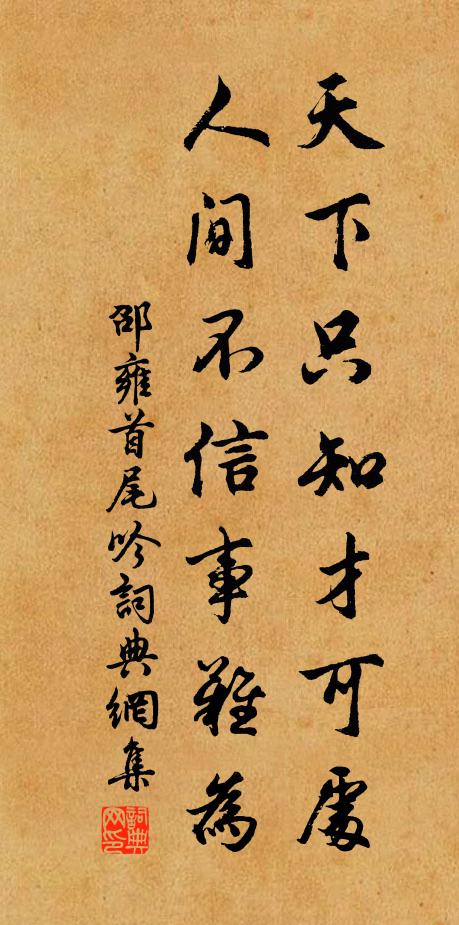 天下只知才可處
人間不信事難為
邵雍首尾吟詞典網集
詞典網印